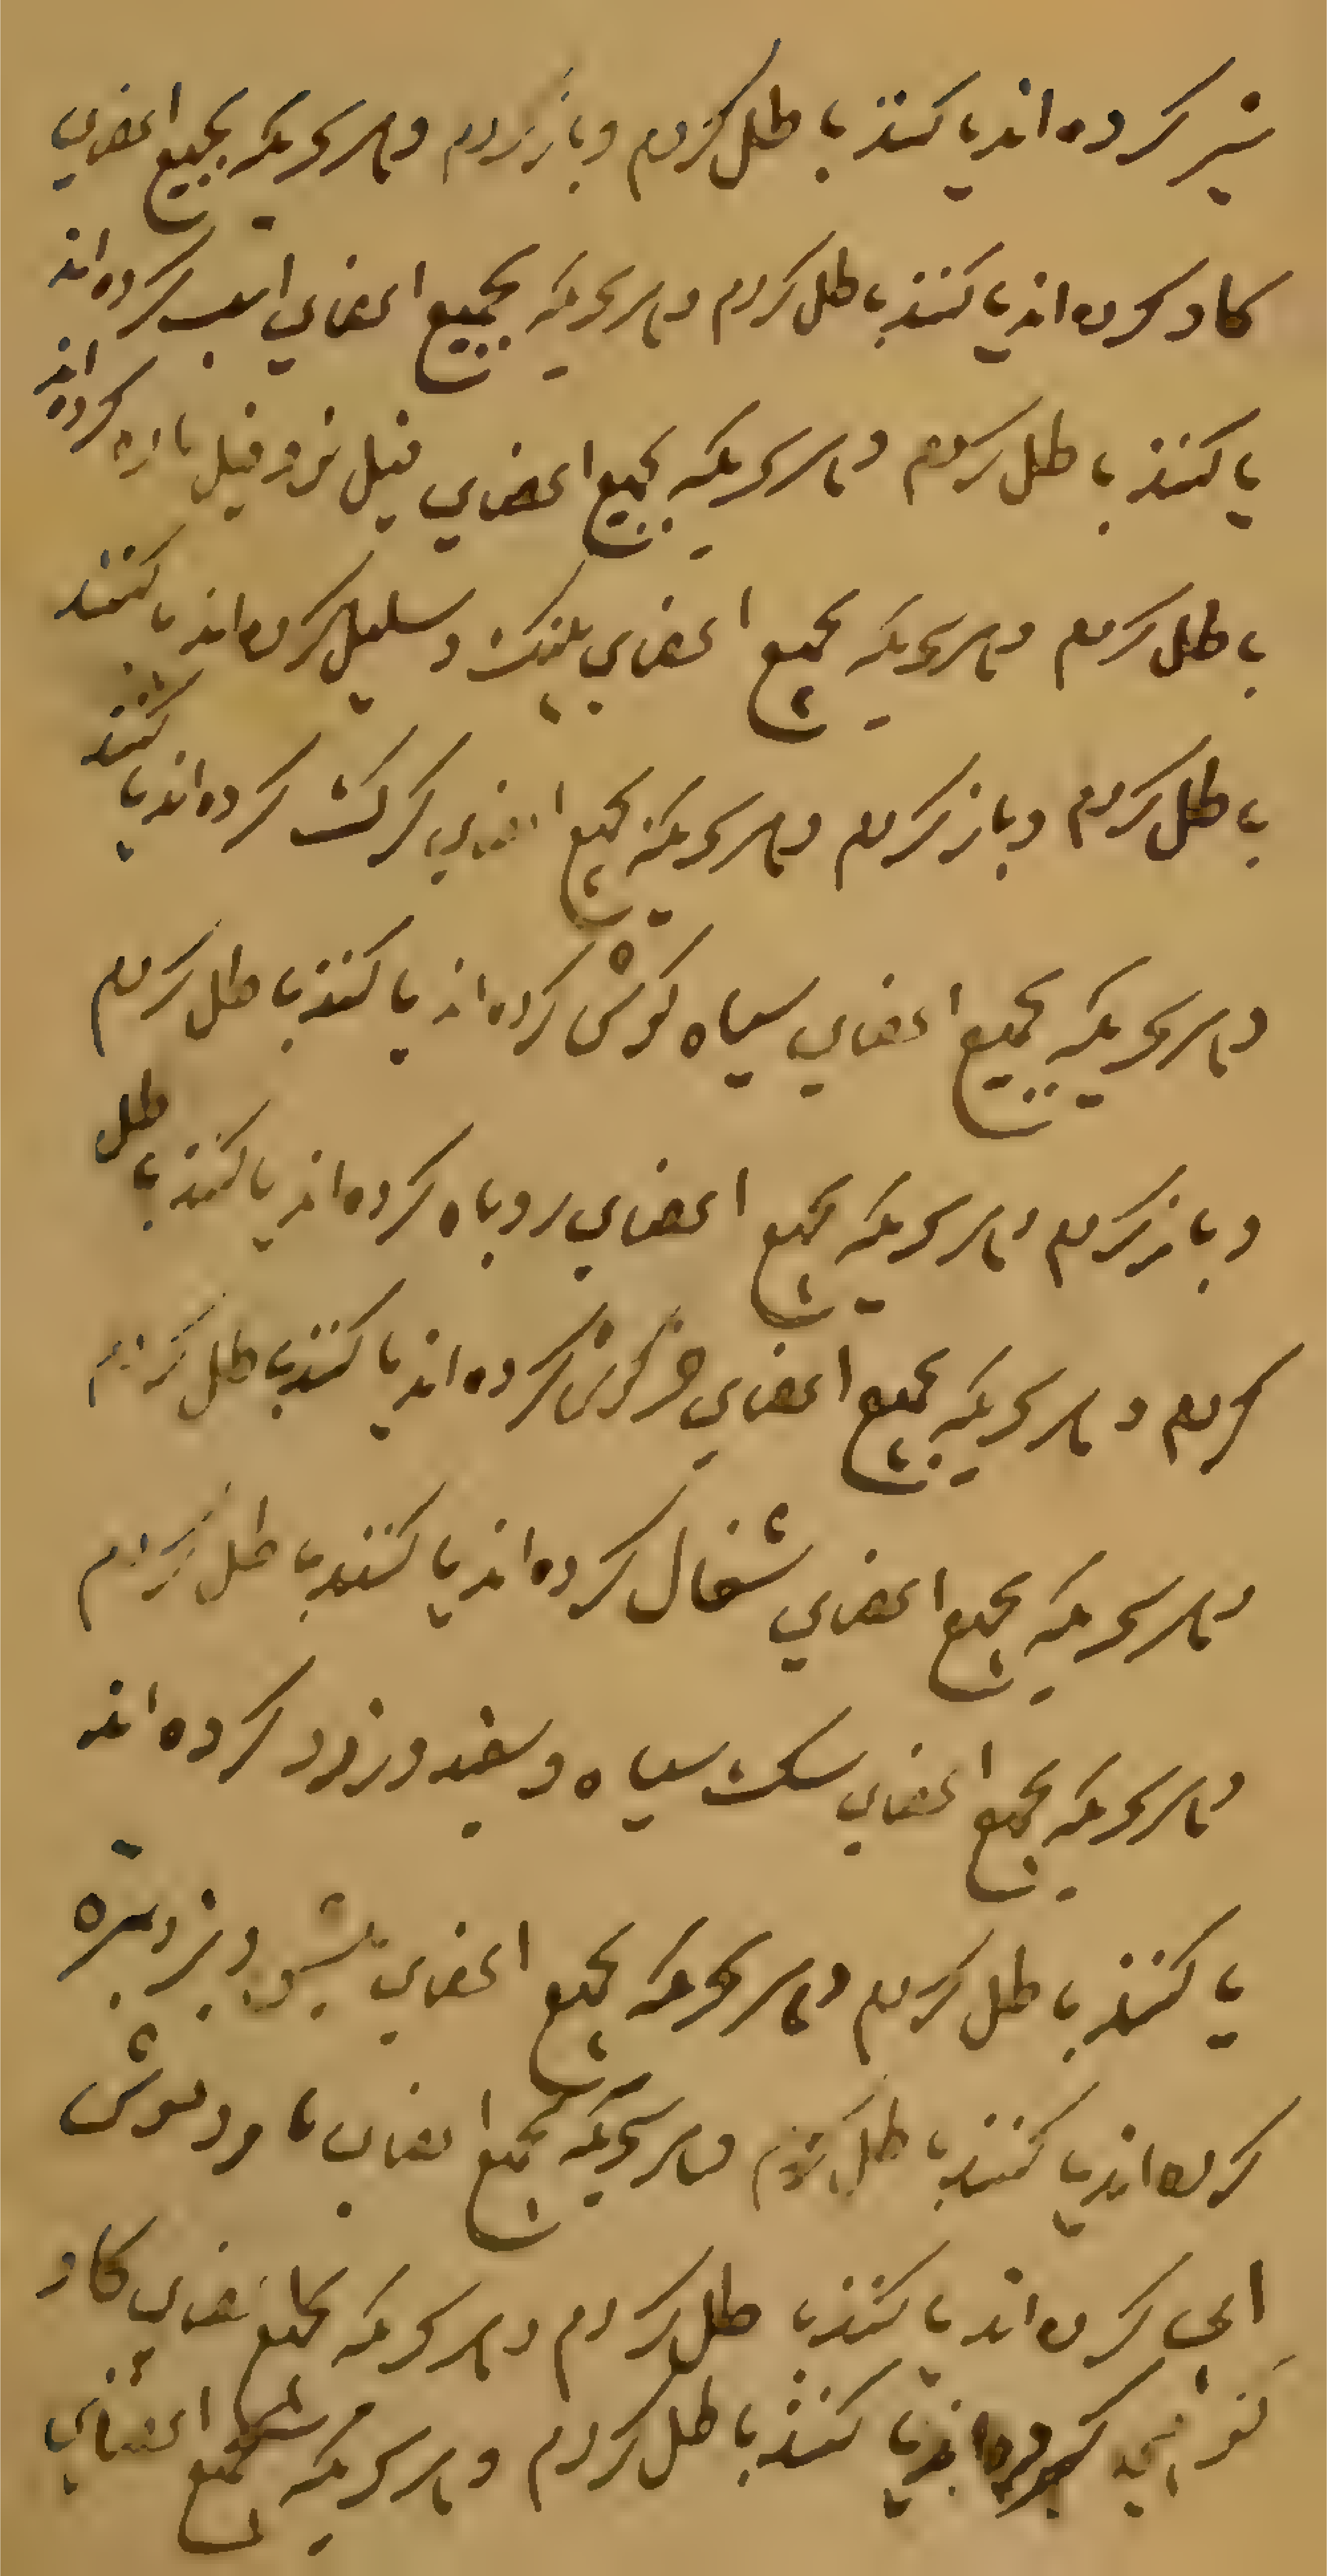 شیر کرده اند یا کنند باطل کردم و باز کردم و هر سحریکه بجمیع اعضای
کاو کرده اند یا کنند باطل کردم و هر سحریکه بجمیع اعضای اسب کرده اند
یا کنند باطل کردم و هر سحریکه بجمیع اعضای فیل نر و فیل ماده کرده اند
باطل کردم و هر سحریکه بجمیع اعضای پلنک و کرده اند یا کنند
باطل کردم و باز کردم و هر سحریکه بجمیع اعضای کرک کرده اند یا کنند
و هر سحریکه بجمیع اعضای سیاه کوش کرده اند یا کنند باطل کردم
و باز کردم و هر سحریکه بجمیع اعضای روباه کرده اند یا کنند باطل
کردم و هر سحریکه بجمیع اعضای خرکوش کرده اند یا کنند باطل کردم
و هر سحریکه بجمیع اعضای شغال کرده اند یا کنند باطل کردم
و هر سحریکه بجمیع اعضای سک سیاه و سفید و زرد کرده اند
یا کنند باطل کردم و هر سحریکه بجمیع اعضای و بز و بره
کرده اند یا کنند باطل کردم و هر سحریکه بجمیع اعضای مار و موش
ابی کرده اند یا کنند باطل کردم و هر سحریکه بجمیع اعضای کاو
کرده اند یا کنند باطل کردم و هر سحریکه بجمیع اعضای